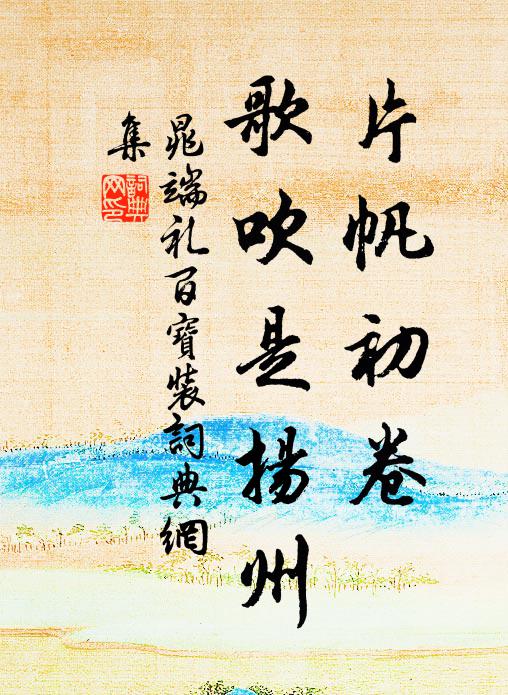 片帆初卷
歌吹是揚州
晁端礼百寶裝詞典網
集
詞典网印